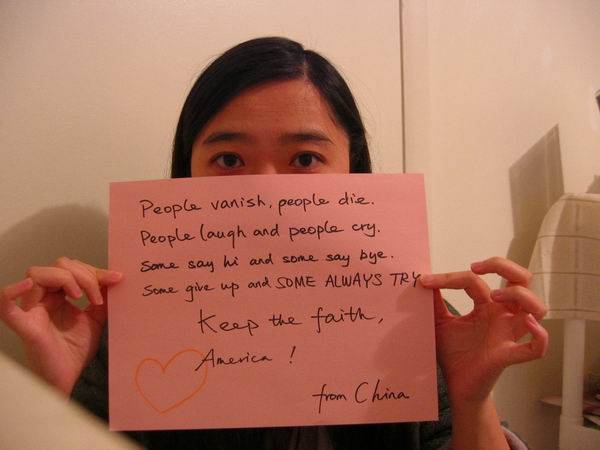 People vanish, people die.
People laugh and people cry.
Some say hi and some say bye.
Some give up and SOME ALWAYS TRY
Keep the faith,
America !
from China